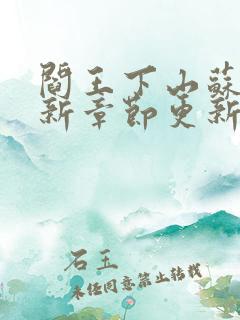 閻王下山蘇
新章節更新
石玉
未经同意禁止转载